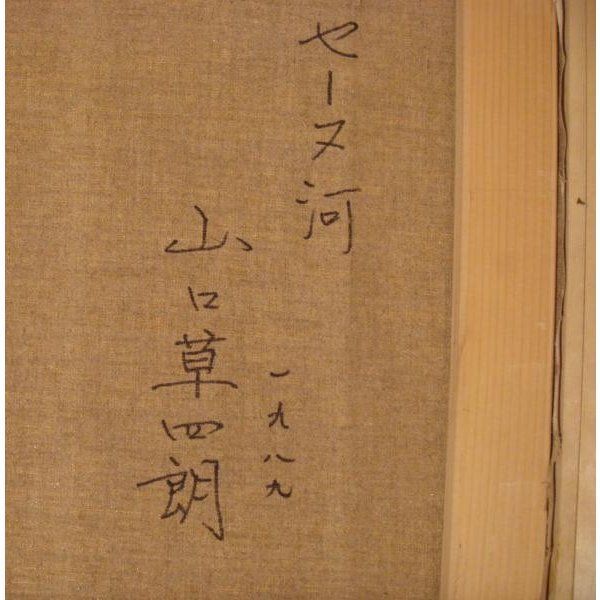 セーヌ河
一九八九
山口草四朗